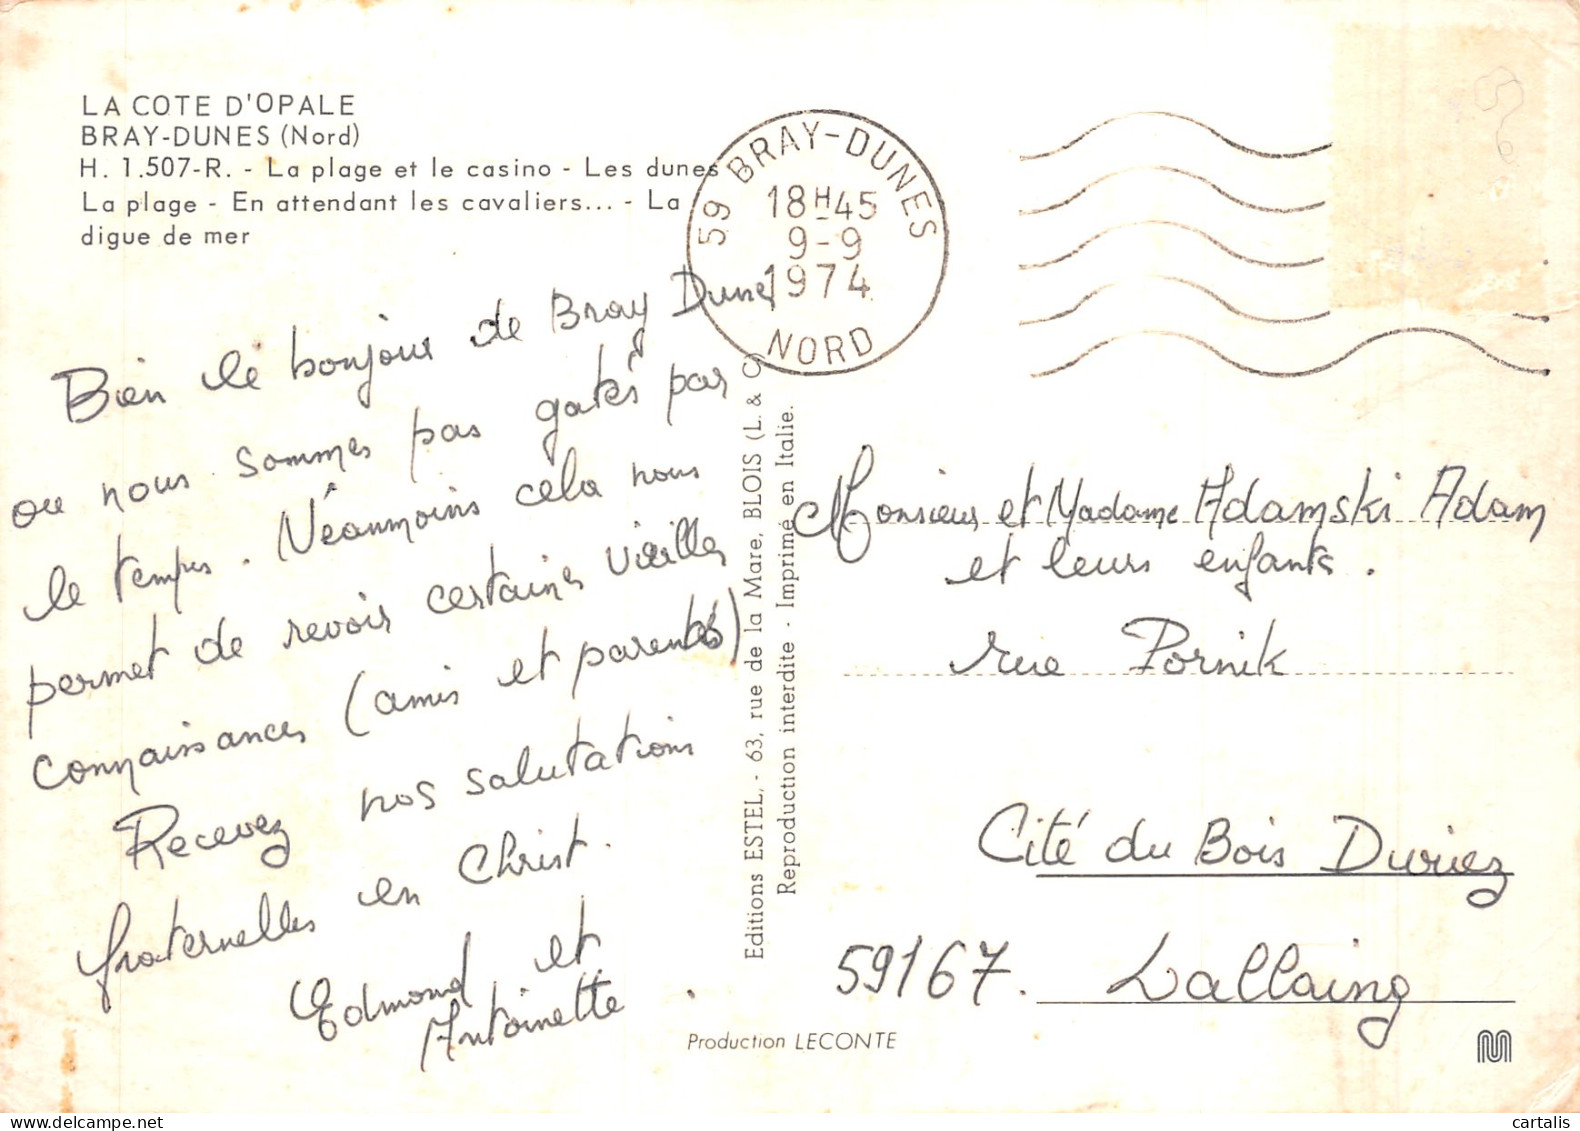 LA COTE D'OPALE
BRAY-DUNES (Nord)
H. 1.507-R. - La plage et le casino - Les dunes
La plage - En attendant les cavaliers... - La
digue de mer
59 BRAY-DUNES
18H45
9-9
1974
NORD
Bien le bonjour de Bray Dunes
ou nous sommes pas gatés par
le temps. Néanmoins cela nous
permet de revoir certaines vieilles
connaissances (amis et parentés)
Recevez nos salutations
fraternelles en Christ.
Edmond et
Antoinette
Editions ESTEL, - 63, rue de la Mare, BLOIS (L. & C)
Reproduction interdite - Imprimé en Italie.
Monsieur et Madame Adamski Adam
et leurs enfants.
rue Pornik
Cité du Bois Duriez
59167. Lallaing
Production LECONTE
cartalis